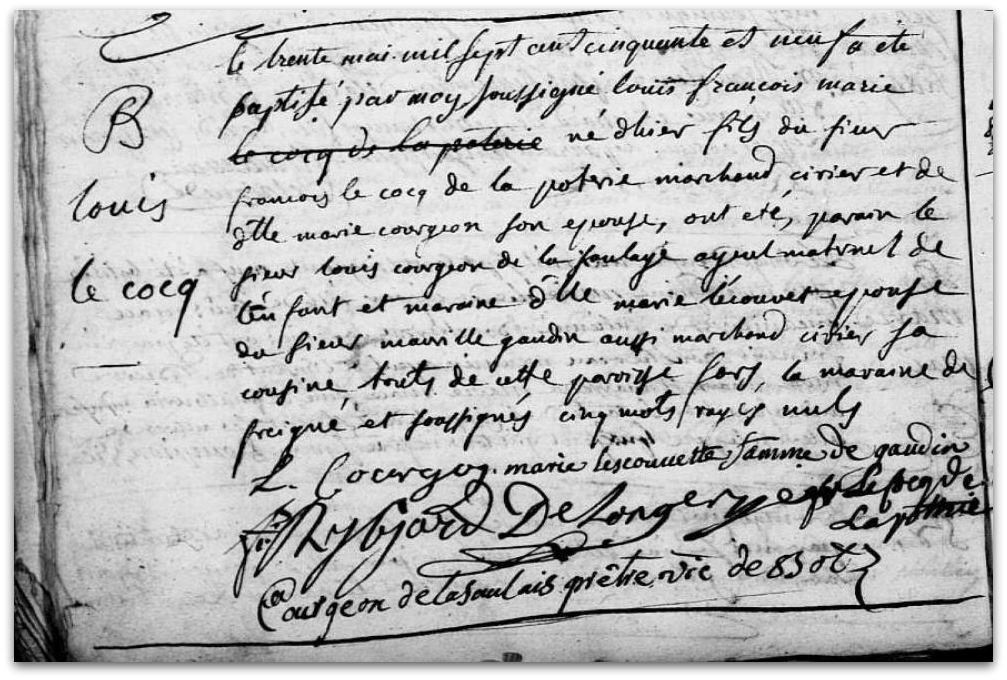 B
louis
le cocq
le trente mai mil sept cent cinquante et neuf a ete
baptisé par moy soussigné louis françois marie
le cocq de la poterie né d'hier fils du sieur
francois le cocq de la poterie marchand cirier et de
dlle marie courgeon son epouse, ont eté, parain le
sieur louis courgeon de la saulaye ayeul maternel de
l'enfant et maraine dlle marie lecouvet epouse
du sieur mauville gaudin aussi marchand cirier sa
cousine, touts de cette paroisse fors la maraine de
freigné et soussignés cinq mots rayés nuls
L. Courgeon marie lescouvette famme de gaudin
De Longer fr Le Cocq de
La poterie
Courgeon de la saulais prêtre vic de